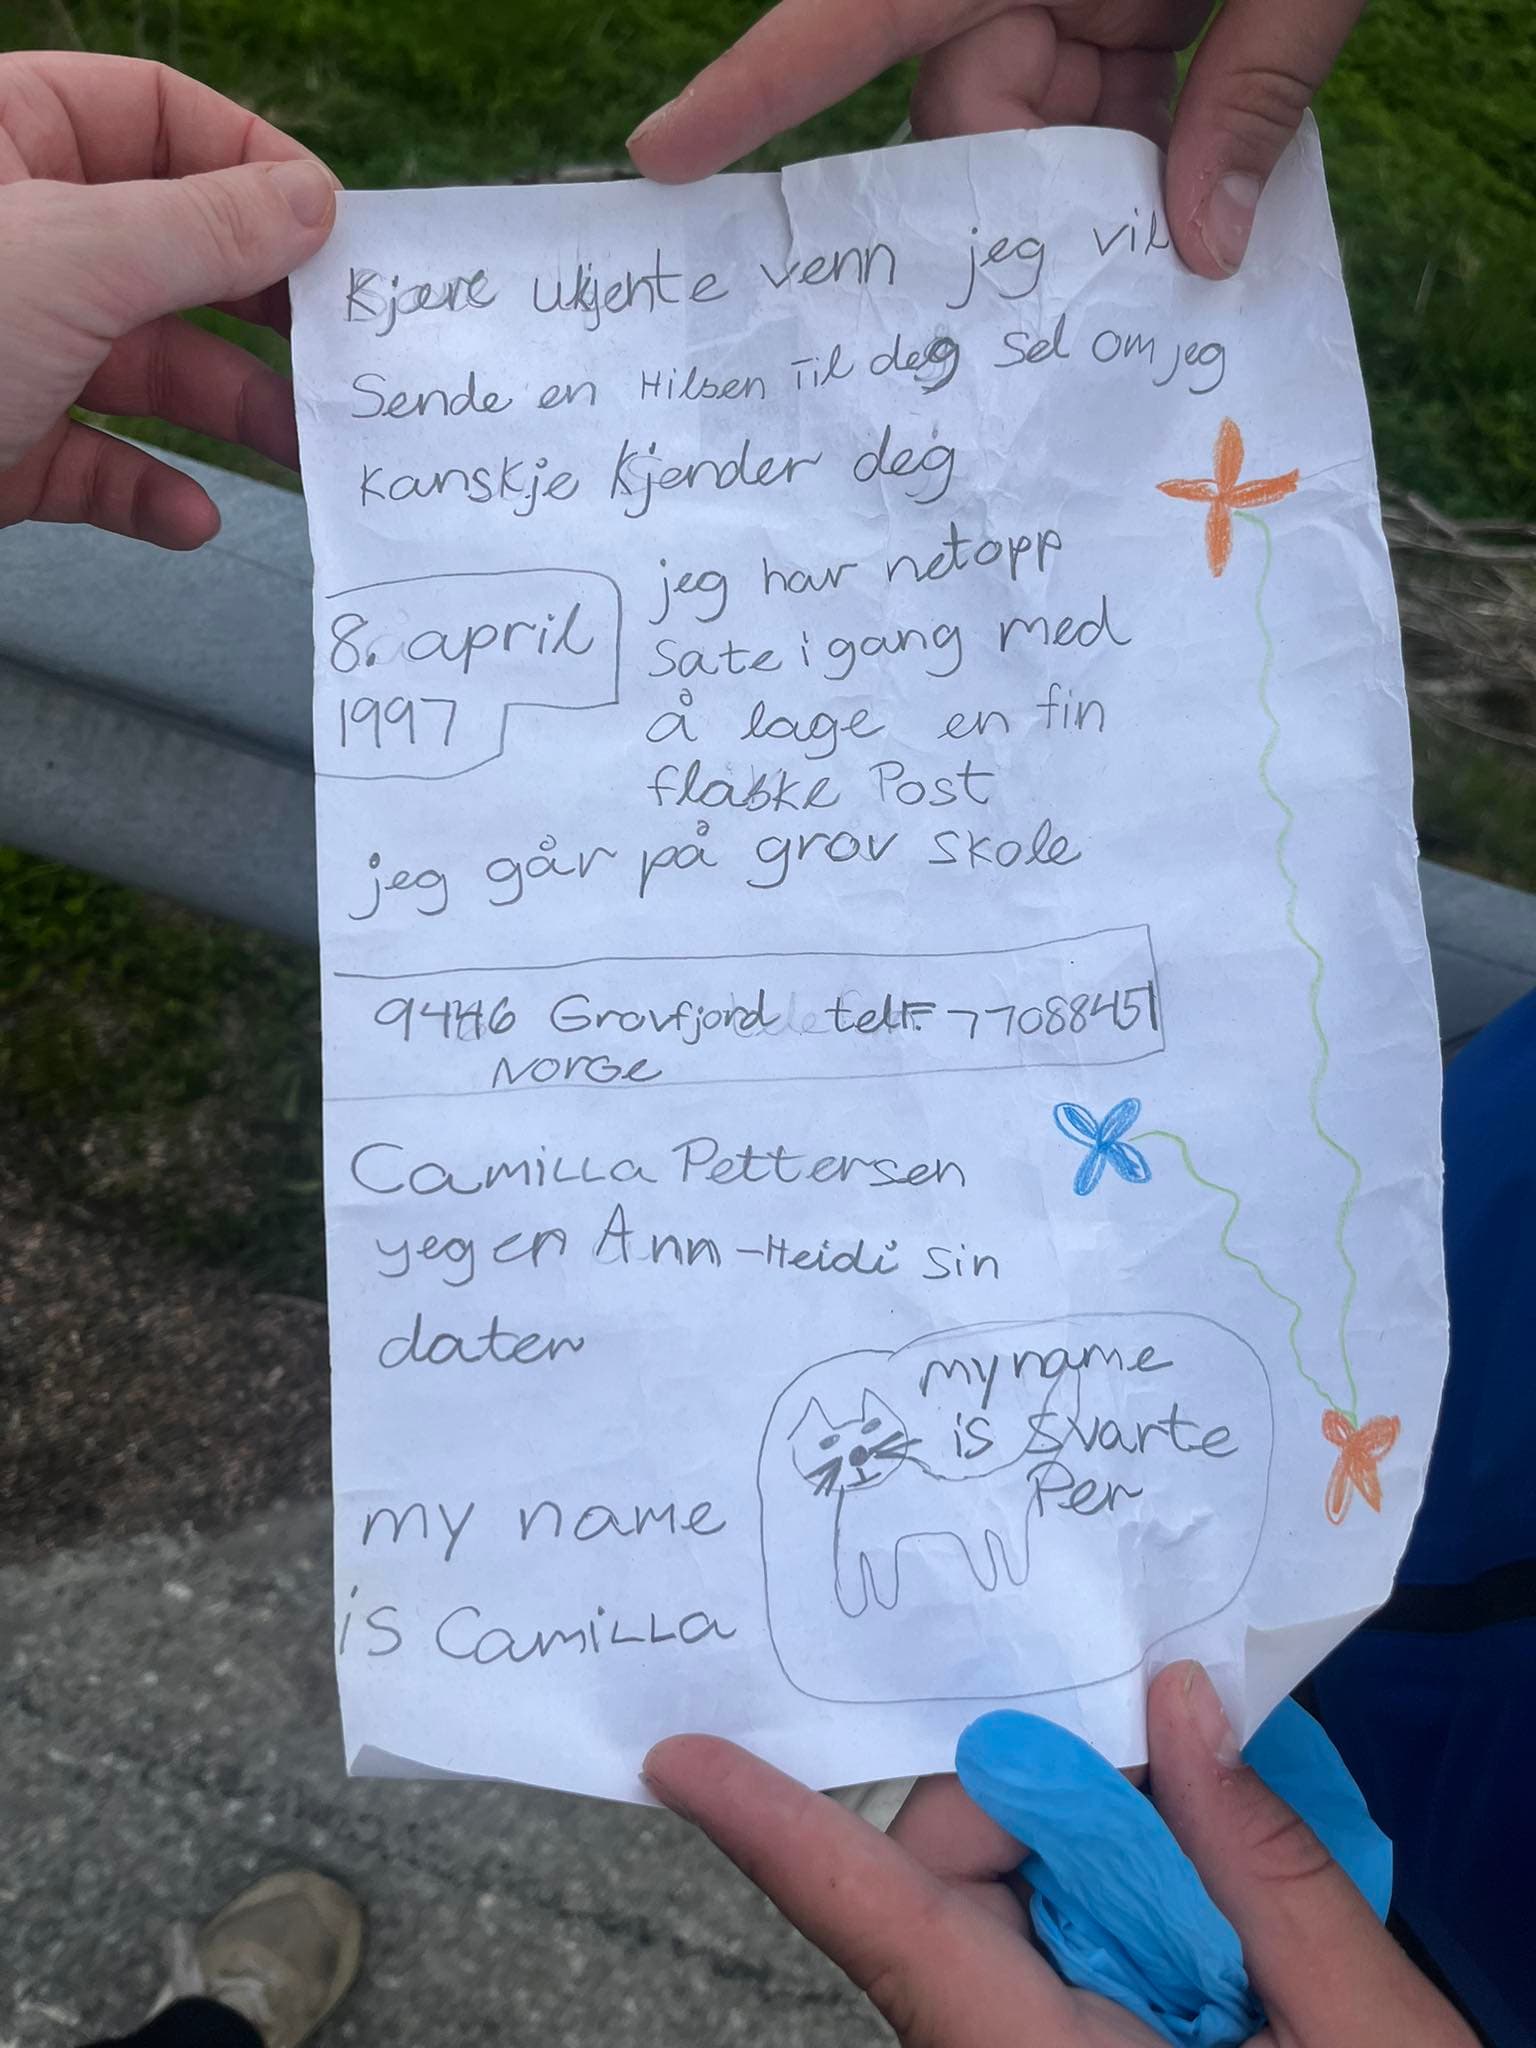 Kjære ukjente venn jeg vil
Sende en Hilsen Til deg Sel om jeg
kanskje kjender deg
8. april
1997
jeg har netopp
Sate i gang med
å lage en fin
flaske Post
jeg går på grov skole
9446 Grovfjord telF. 77088451
Norge
Camilla Pettersen
yeg er Ann-Heidi sin
dater
my name
is Svarte
Per
my name
is Camilla